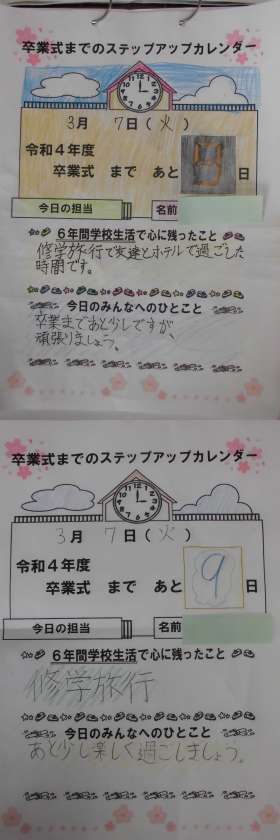 卒業式までのステップアップカレンダー
3月 7日(火)
令和4年度
卒業式 まで あと 9 日
今日の担当
名前
6年間学校生活で心に残ったこと
修学旅行で友達とホテルで過ごした
時間です。
今日のみんなへのひとこと
卒業まであと少しですが、
頑張りましょう。
卒業式までのステップアップカレンダー
3月 7日(火)
令和4年度
卒業式 まで あと 9 日
今日の担当
名前
6年間学校生活で心に残ったこと
修学旅行
今日のみんなへのひとこと
あと少し楽しく過ごしましょう。